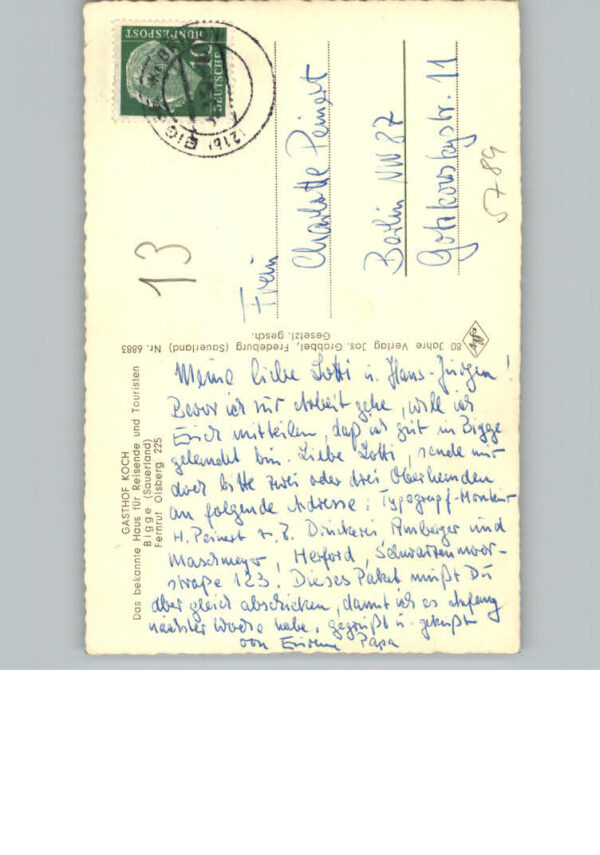 DEUTSCHE
BUNDESPOST
10
(21b) BIGGE
Frau
Charlotte Peinert
Berlin NW 87
Gotzkowskystr. 11
5789
13
80 Jahre Verlag Jos. Grobbel, Fredeburg (Sauerland) Nr. 6883
Gesetzl. gesch.
Agfa
GASTHOF KOCH
Das bekannte Haus für Reisende und Touristen
Bigge (Sauerland)
Fernruf Olsberg 225
Meine liebe Lotti u. Hans-Jürgen!
Bevor ich zur Arbeit gehe, will ich
Euch mitteilen, daß ich gut in Bigge
gelandet bin. Liebe Lotti, sende mir
doch bitte zwei oder drei Oberhemden
an folgende Adresse: Typograph-Monteur
H. Peinert z. Z. Druckerei Amberger und
Maschmeyer, Herford, Schwarzenmoor-
straße 123. Dieses Paket mußt Du
aber gleich abschicken, damit ich es anfang
nächster Woche habe. gegrüßt u. geküßt
von Eurem Papa